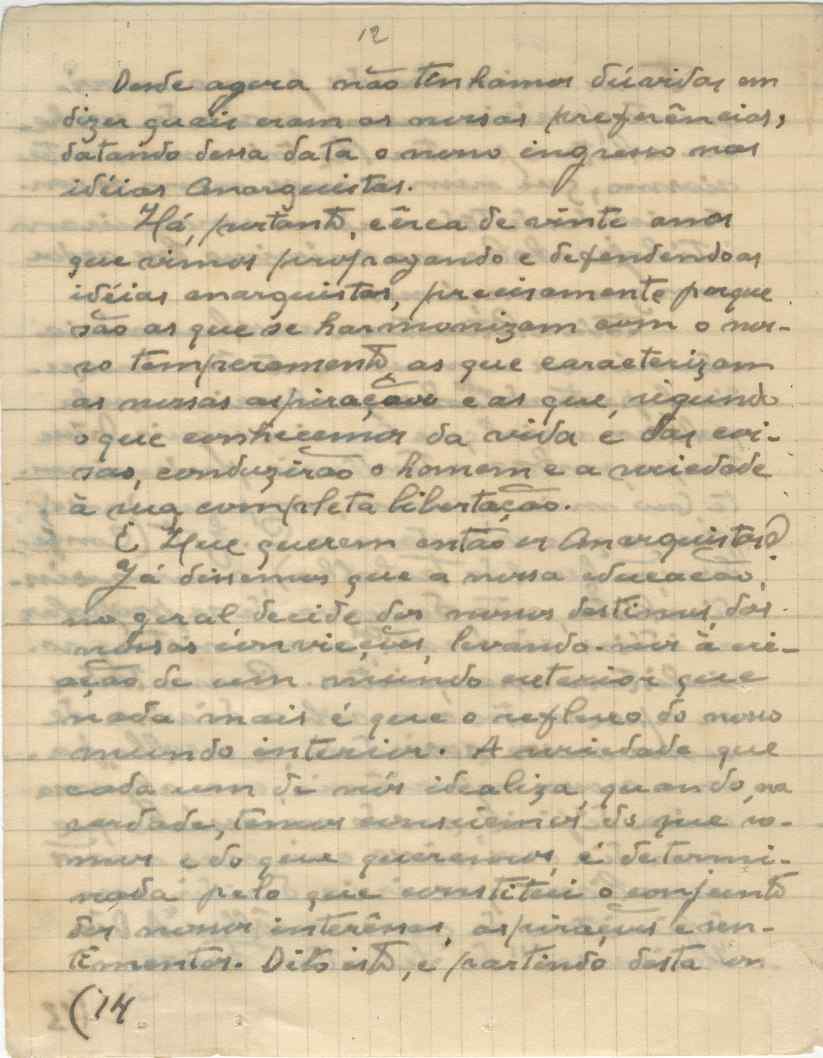 12
Desde agora não tenhamos dúvidas em
dizer quais eram as nossas preferências,
datando dessa data o nosso ingresso nas
idéias Anarquistas.
Há, portanto, cêrca de vinte anos
que vimos propagando e defendendo as
idéias anarquistas, precisamente porque
são as que se harmonizam com o nos-
so temperamento, as que caracterizam
as nossas aspirações e as que, segundo
o que conhecemos da vida e das coi-
sas, conduzirão o homem e a sociedade
à sua completa libertação.
É Que querem então os Anarquistas?
Já dissemos que a nossa educação,
no geral decide dos nossos destinos, das
nossas convicções, levando-nos à cri-
ação de um mundo exterior que
nada mais é que o reflexo do nosso
mundo interior. A sociedade que
cada um de nós idealiza, quando, na
verdade, temos consciência do que so-
mos e do que queremos, é determi-
nada pelo que constitui o conjunto
dos nossos interêsses, aspirações e sen-
timentos. Dito isto, e partindo desta
(14